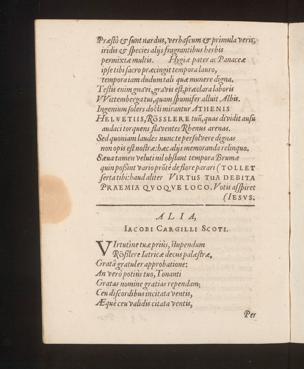 Præstò & sunt nardus, verbascum & primula veris,
iridis & species alijs fragrantibus herbis
permixtæ multis. Hygiæ pater ac Panaceæ
ipse tibi sacro præcingit tempora lauro,
tempora iam dudum tali quæ munere digna.
Testis enim gnavi, gravis est, præclara laboris
VVittembergatus, quam spumifer alluit Albis.
Ingenium solers docti mirantur ATHENIS
HELVETIIS, RÖSSLERE tuũ, quas dividit ausu
audaci torquens flaventes Rhenus arenas.
Sed quoniam laudes nunc te persolvere dignas
non opis est nostræ: hæc alijs memoranda relinquo,
Sæva tamen veluti nil obstant tempora Brumæ
quin possint vario prõte de flore parari (TOLLET
serta tibi: haud aliter VIRTUS TUA DEBITA
PRAEMIA QVOQVE LOCO. Votis aspiret
(IESVS.
ALIA,
IACOBI CARGILLI SCOTI.
Virtutine tuæ priùs, stupendum
Rösslere Iatricæ decus palæstræ,
Gratã gratuler approbatione:
An verò potiùs tuo, Tonanti
Gratas nomine gratias rependam;
Ceu discordibus incitata ventis,
Æquè ceu validis citata ventis,
Per